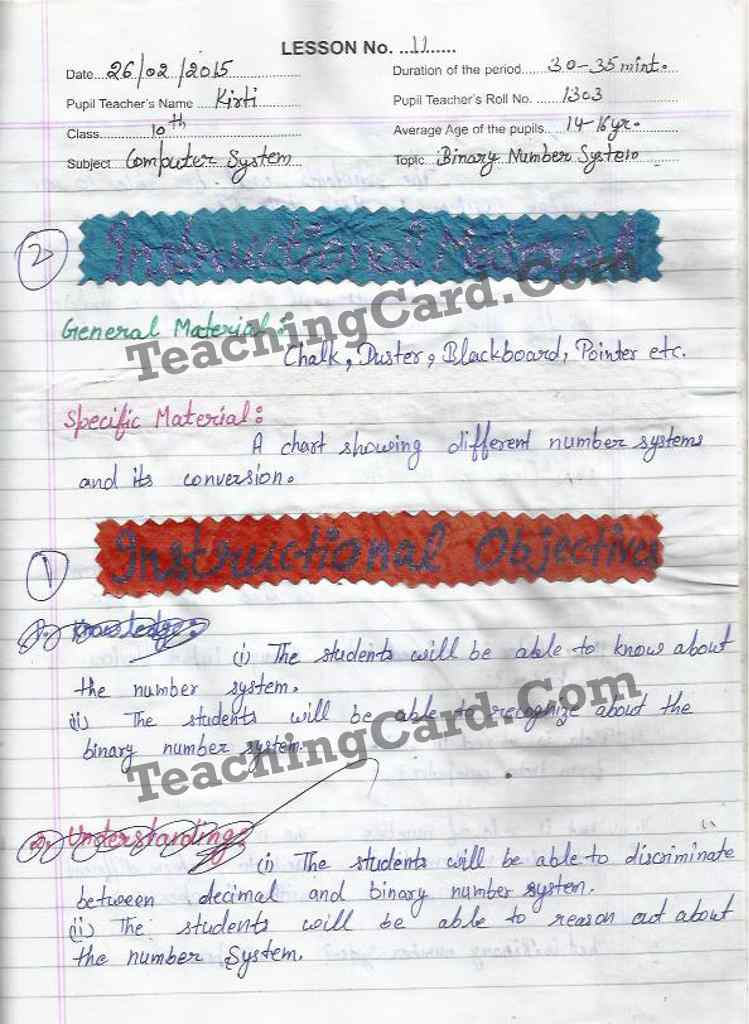 LESSON No. ..11......
Date...26/02/2015
Duration of the period....30-35 mint.
Pupil Teacher's Name ....Kirti
Pupil Teacher's Roll No. ......1303
Class.........10th
Average Age of the pupils.....14-16yr.
Subject Computer System
Topic Binary Number System
2
Instructional Material
General Material:
Chalk, Duster, Blackboard, Pointer etc.
TeachingCard.Com
Specific Material:
A chart showing different number systems
and its conversion.
1
Instructional Objectives
1.) Knowledge:
(i) The students will be able to know about
the number system.
(ii) The students will be able to recognize about the
binary number system.
TeachingCard.Com
2.) Understanding:
(i) The students will be able to discriminate
between decimal and binary number system.
(ii) The students will be able to reason out about
the number System.